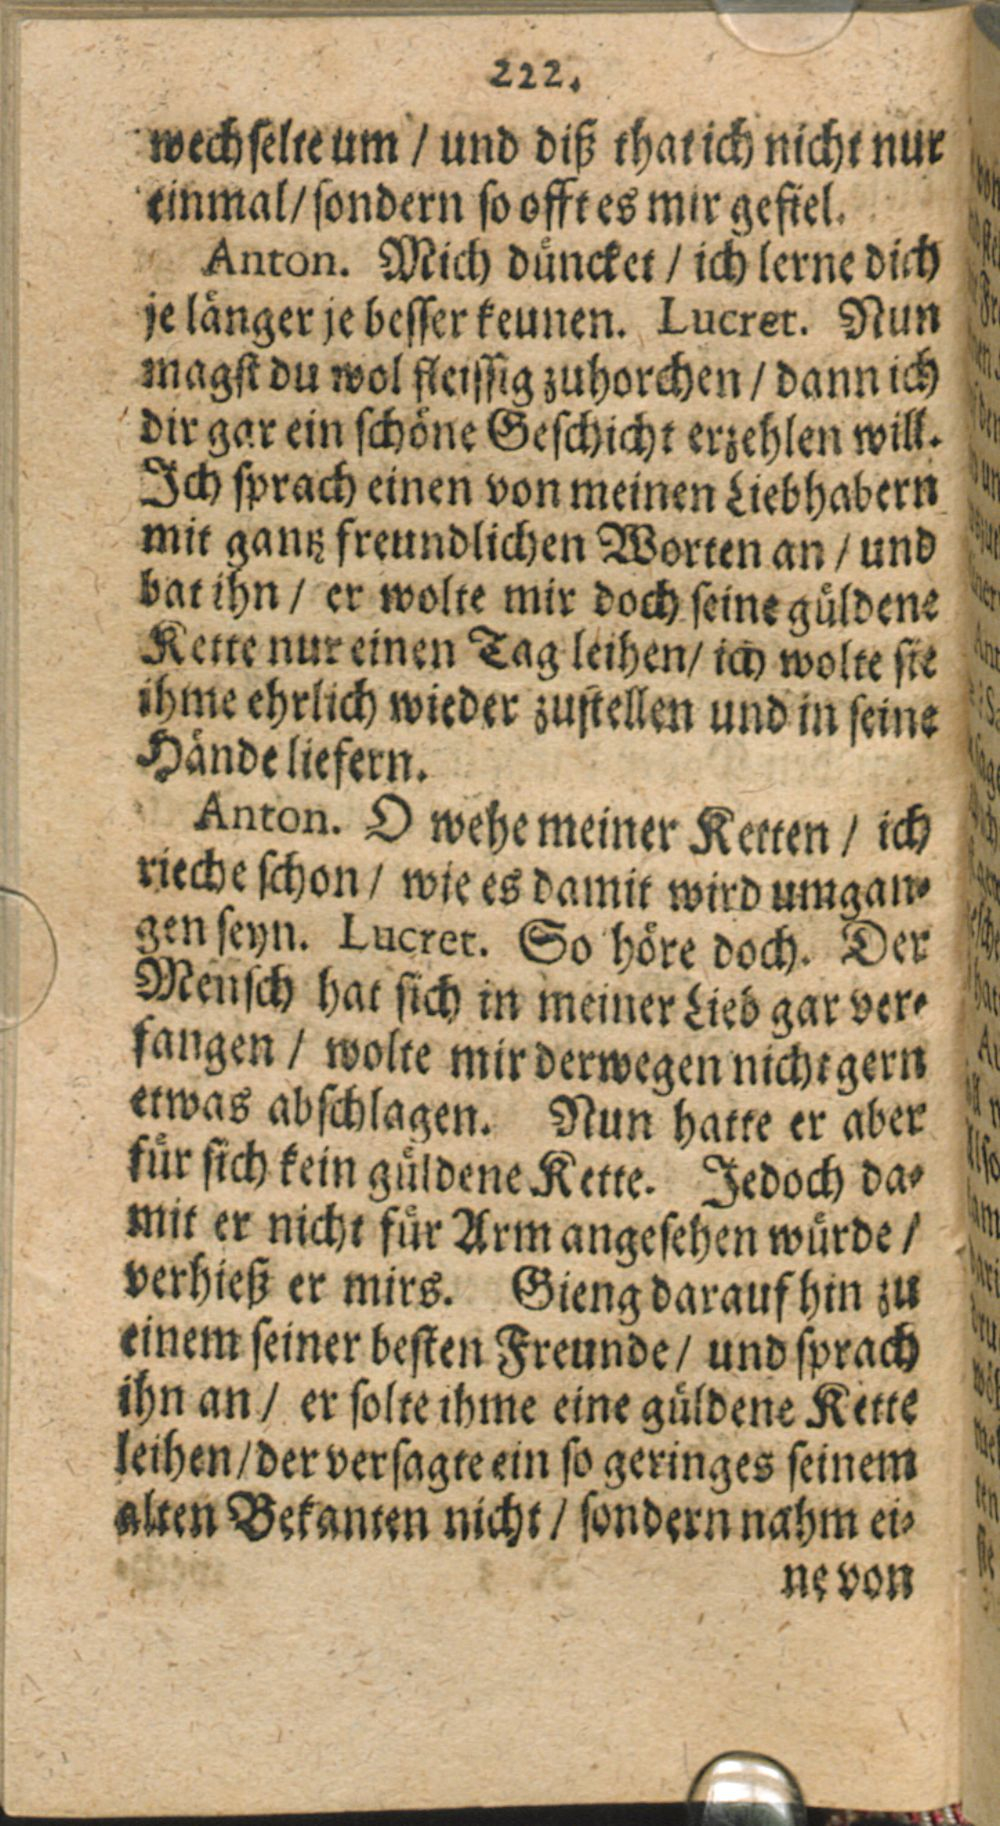 222.
wechselte um / und diß that ich nicht nur
einmal / sondern so offt es mir gefiel.
Anton. Mich düncket / ich lerne dich
je länger je besser keunen. Lucret. Nun
magst du wol fleissig zuhorchen / dann ich
dir gar ein schöne Geschicht erzehlen will.
Ich sprach einen von meinen Liebhabern
mit gantz freundlichen Worten an / und
bat ihn / er wolte mir doch seine güldene
Kette nur einen Tag leihen / ich wolte sie
ihme ehrlich wieder zustellen und in seine
Hände liefern.
Anton. O wehe meiner Ketten / ich
rieche schon / wie es damit wird umgan-
gen seyn. Lucret. So höre doch. Der
Mensch hat sich in meiner Lieb gar ver-
fangen / wolte mir derwegen nicht gern
etwas abschlagen. Nun hatte er aber
für sich kein güldene Kette. Jedoch da-
mit er nicht für Arm angesehen würde /
verhieß er mirs. Gieng darauf hin zu
einem seiner besten Freunde / und sprach
ihn an / er solte ihme eine güldene Kette
leihen / der versagte ein so geringes seinem
alten Bekanten nicht / sondern nahm ei-
ne von